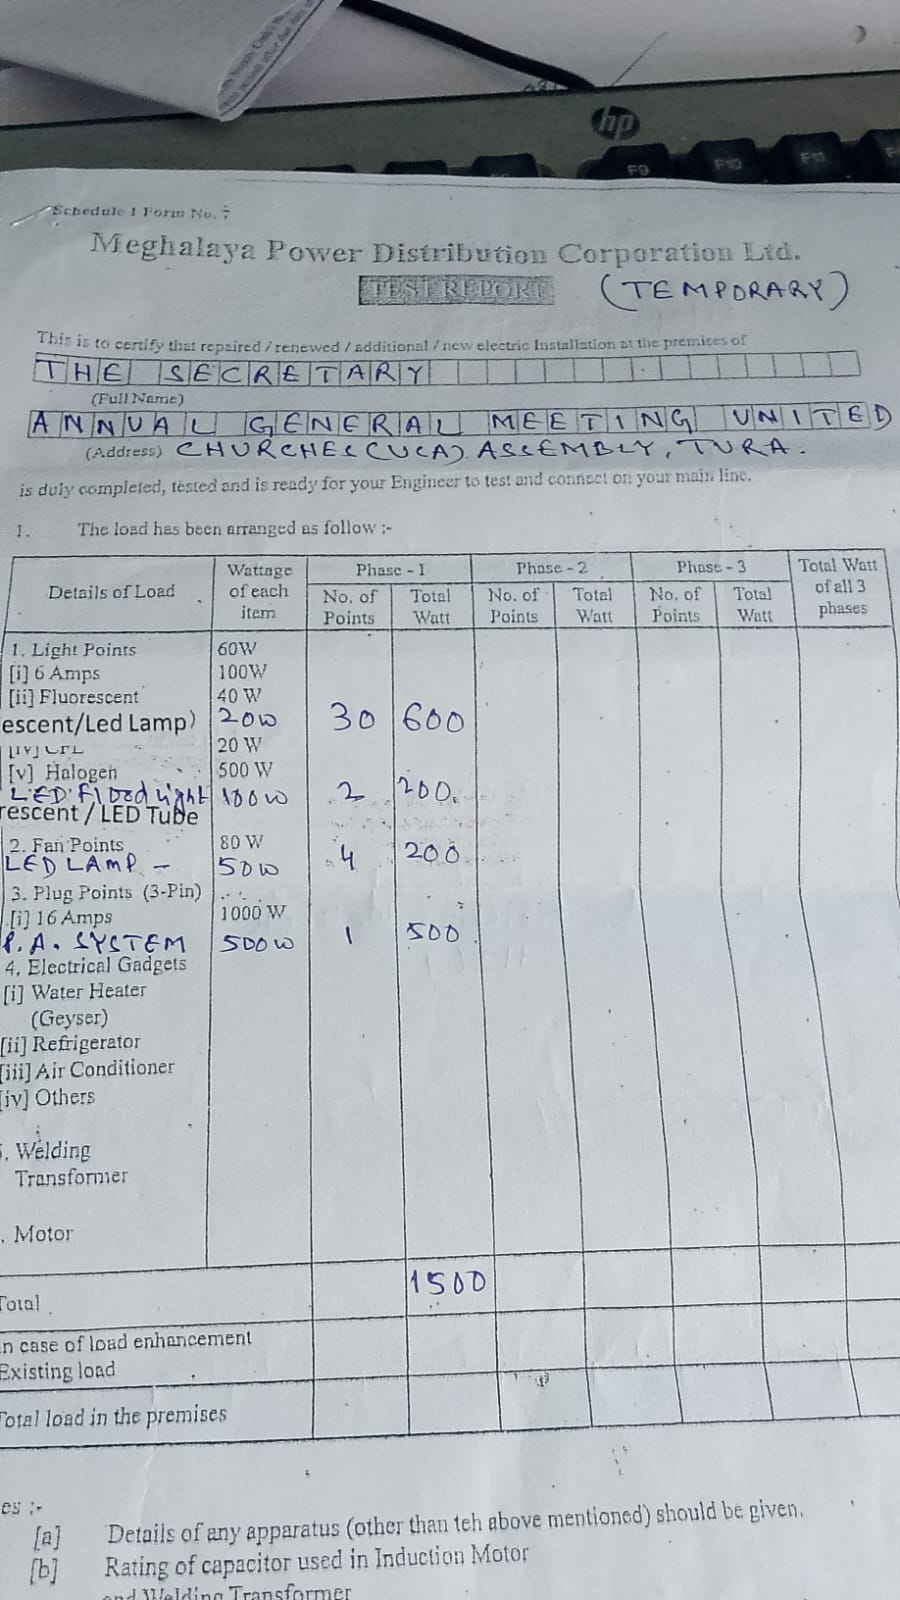 hp
F9
F10
F11
Schedule 1 Form No. 7
Meghalaya Power Distribution Corporation Ltd.
TEST REPORT (TEMPORARY)
This is to certify that repaired / renewed / additional / new electric Installation at the premises of
THE SECRETARY
(Full Name)
ANNUAL GENERAL MEETING UNITED
(Address) CHURCHES (UCA) ASSEMBLY, TURA.
is duly completed, tested and is ready for your Engineer to test and connect on your main line.
1. The load has been arranged as follow :-
Details of Load Wattage of each item Phase - 1 Phase - 2 Phase - 3 Total Watt of all 3 phases
No. of Points Total Watt No. of Points Total Watt No. of Points Total Watt
1. Light Points 60W
[i] 6 Amps 100W
[ii] Fluorescent 40 W
escent/Led Lamp) 20W 30 600
[iv] CFL 20 W
[v] Halogen 500 W
LED Flood Light 100W 2 200
rescent / LED Tube
2. Fan Points 80 W
LED LAMP - 50W 4 200
3. Plug Points (3-Pin)
[i] 16 Amps 1000 W
P.A. SYSTEM 500W 1 500
4. Electrical Gadgets
[i] Water Heater
(Geyser)
[ii] Refrigerator
[iii] Air Conditioner
[iv] Others
. Welding
Transformer
. Motor
Total 1500
n case of load enhancement
Existing load
Total load in the premises
es :-
[a] Details of any apparatus (other than teh above mentioned) should be given.
[b] Rating of capacitor used in Induction Motor
and Welding Transformer